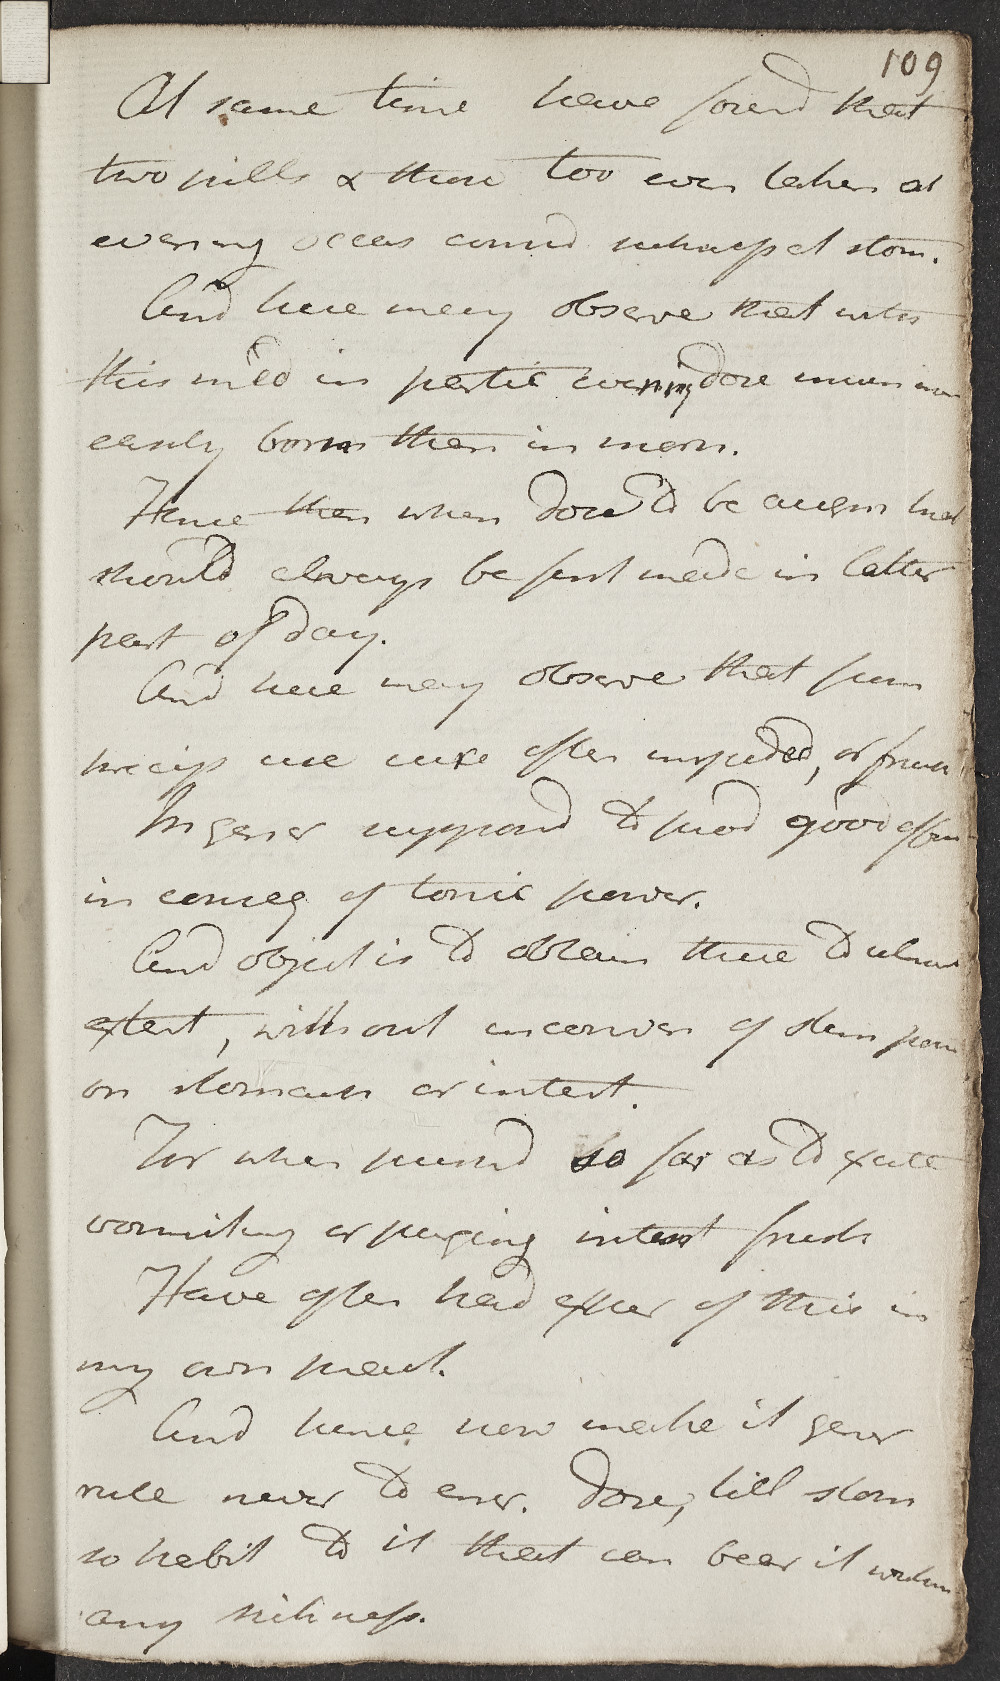 109
At same time have found that
two pills & these too even taken at
evening occas consid sickness at stom.
And here may observe that with
this med in partic evening dose much more
easily born than in morn.
Hence then when dose to be augm
should always be first made in latter
part of day.
And here may observe that from
are more often
In gener supposed to prod good effects
in conseq of tonic power.
And object is to obtain these to utmost
extent, without inconven of
on stomach or intest.
For when pursued so far as to excite
vomiting or purging intent frustr
Have often had exper of this in
my own pract.
And hence now make it gener
rule never to encr. dose, till stom
so habit to it that can bear it without
any sickness.